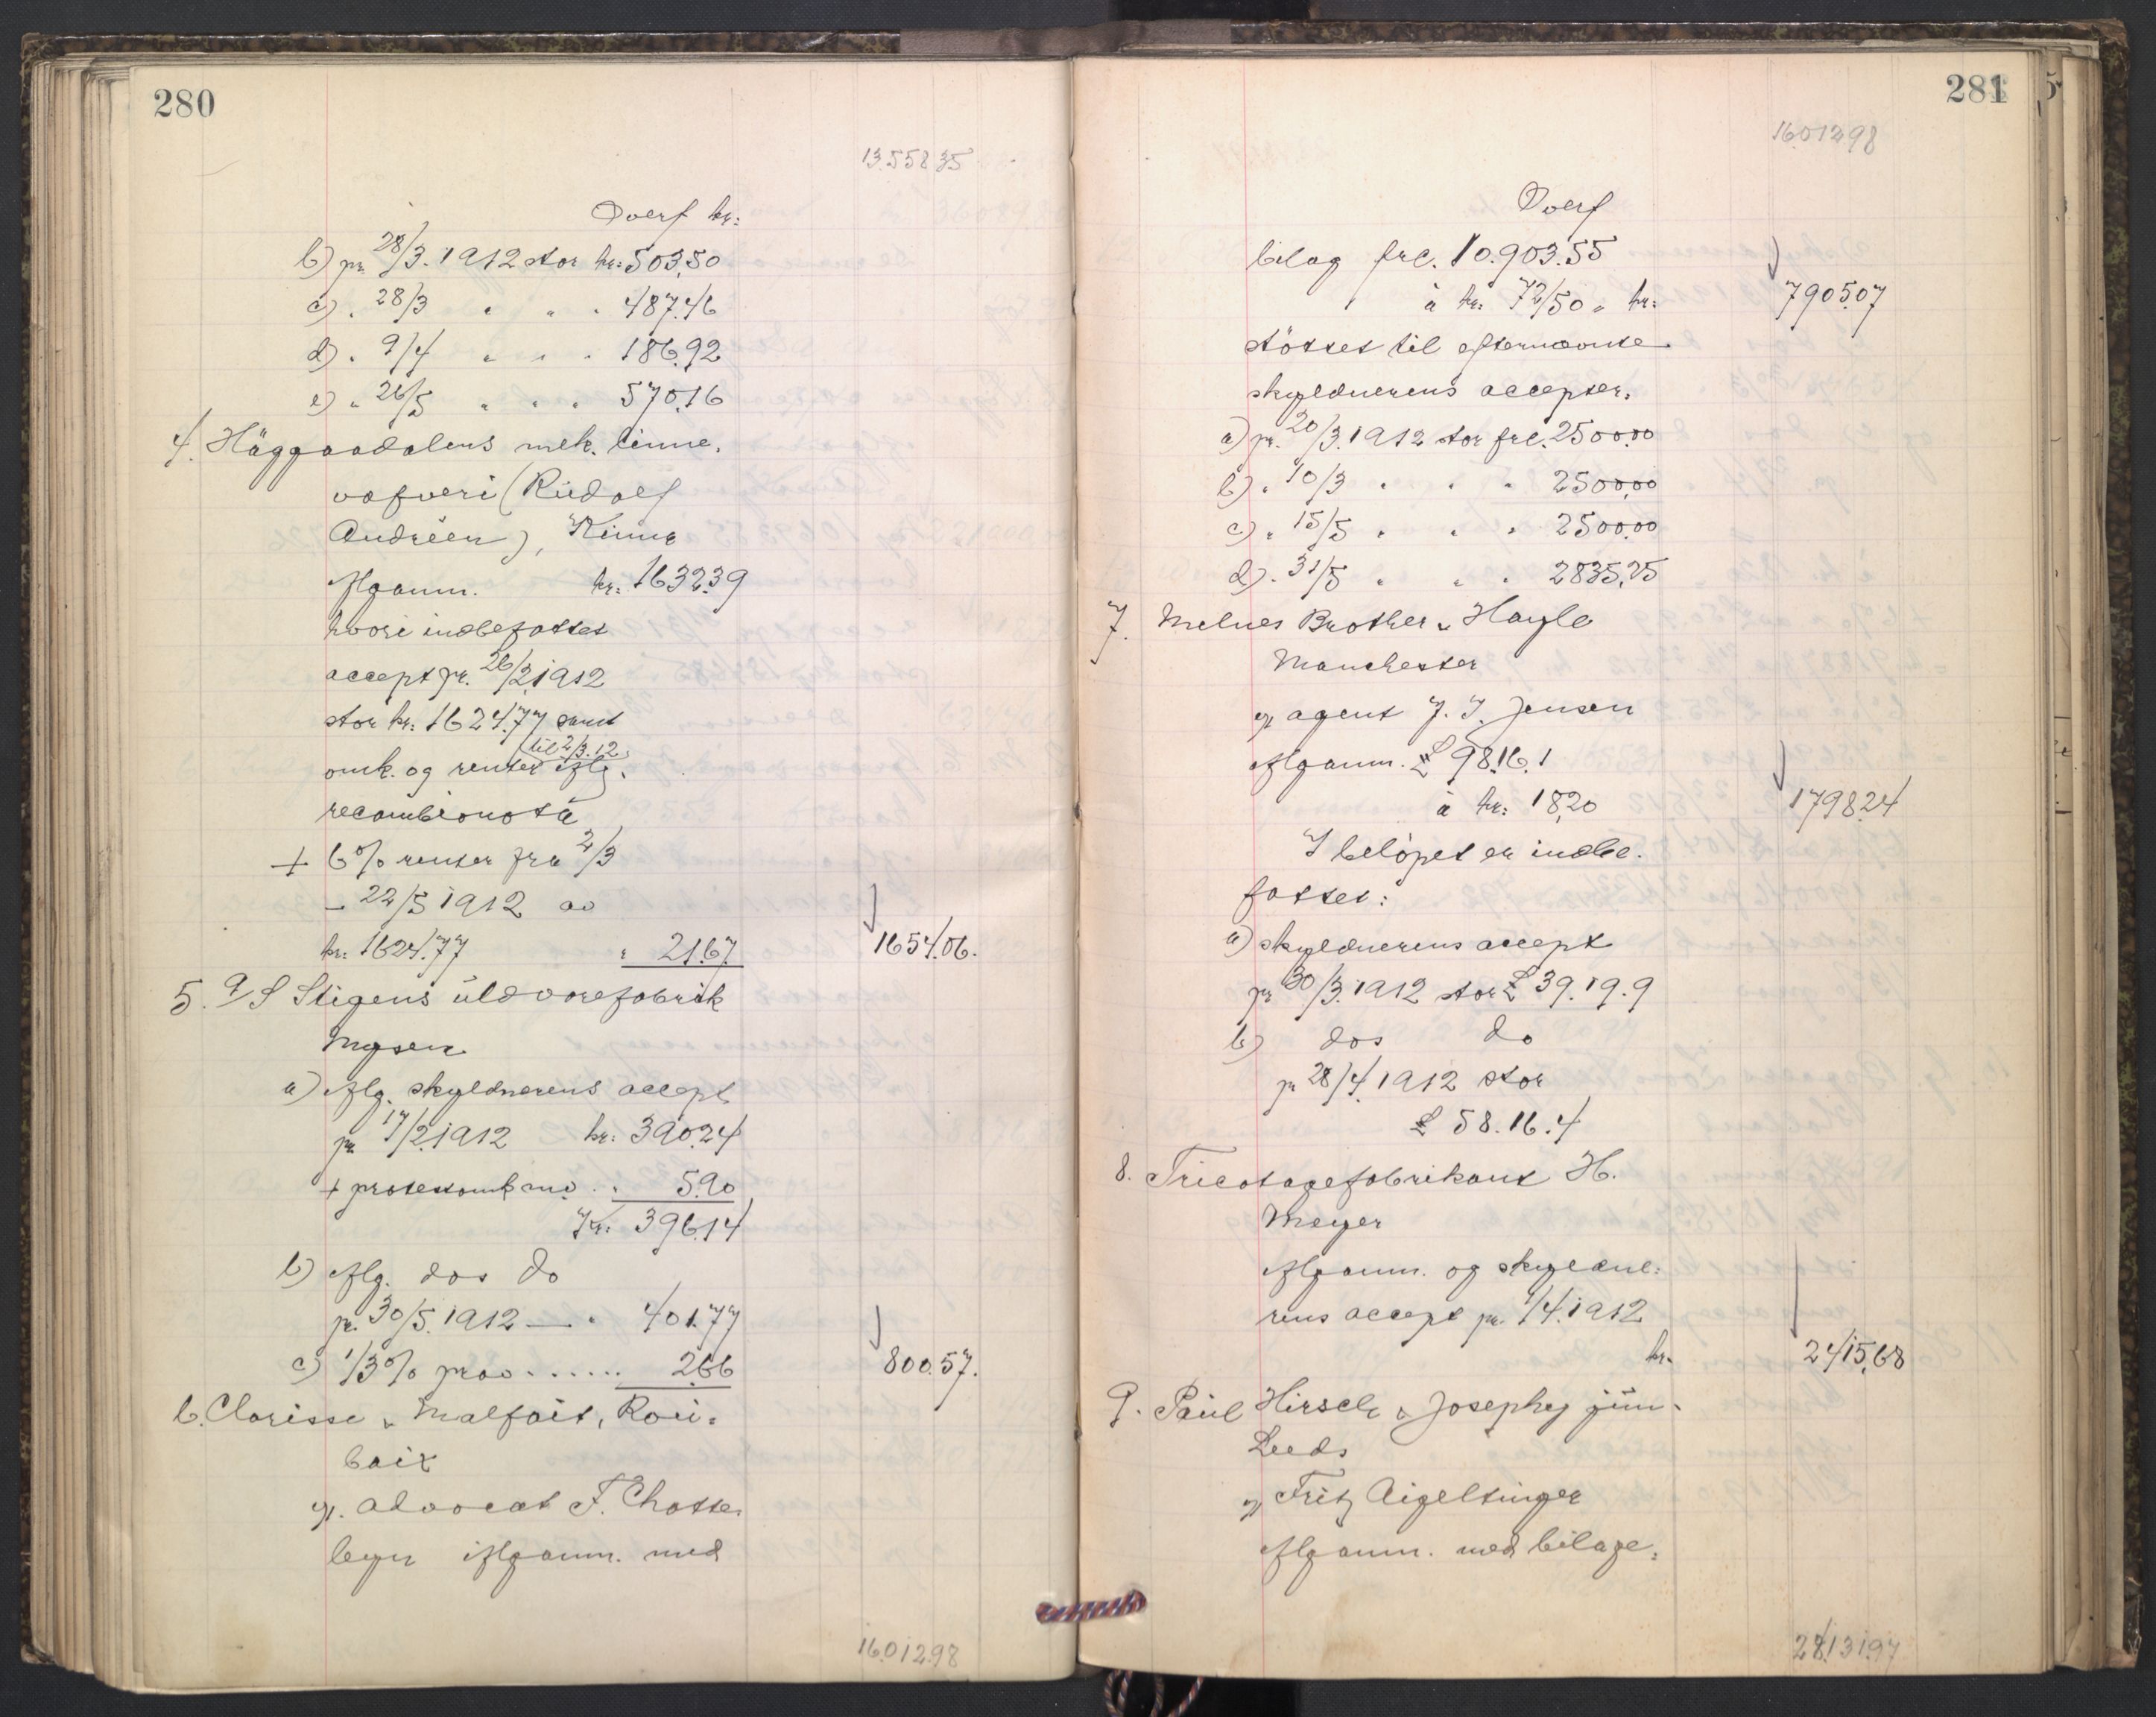 280
13.558 35
Overf kr:
b) pr 28/3. 1912 stor kr: 503,50
c) " 28/3 " " " 487.46
d) " 9/4 " " " 186.92
e) " 26/5 " " " 570.16
4. Häggaadalens mek. linne-
vafveri (Rudolf
Andréen), Kinna
iflg anm. kr: 1632.39
hvori indbefattet
accept pr. 26/2 1912
stor kr: 1624.77 samt
til 2/3.12
omk. og renter iflg.
recambionota
+ 6% renter fra 2/3
- 22/5 1912 av
kr: 1624.77 " 21.67 1654.06.
5. A/S Stigens uldvarefabrik
Mysen
a) iflg. skyldnerens accept
pr 17/2 1912 kr: 390.24
+ protestomk m.v. " 5.90
Kr: 396.14
b) iflg. dos do
pr. 30/5. 1912 — " 401.77
c) 1/3% prov. . . . . . 2.66 800.57.
6. Clarisse & Malfait, Rou-
baix
v. advocat F. Chatte
leyn iflg anm. med
16.012.98
281
16.012.98
Overf
bilag frc. 10.903.55
à kr: 72/50 " kr: 7905.07
støttet til efternævnte
skyldnerens accepter.
a) pr. 20/3. 1912 stor frc. 2500.00
b) " 10/3 " " " 2500,00
c) " 15/5 " " " 2500.00
d) " 31/5 " " " 2835,25
7. Melnes Brother & Hayle
Manchester
v. agent J. J. Jensen
iflg anm. £ 98.16.1
à kr: 18,20 1798.24
I beløpet er indbe-
fattet:
a) skyldnerens accept
pr 30/3. 1912 stor £ 39.19.9
b) dos do
pr 28/4 1912 stor
£ 58.16.4
8. Tricotagefabrikant H.
Meyer
iflg anm. og skyldne-
rens accept pr. 1/4. 1912
kr. 2415,68
9. Paul Hirsch & Josephy jun-
Leeds
v. Fritz Aigeltinger
iflg anm. med bilage-
28.131.97